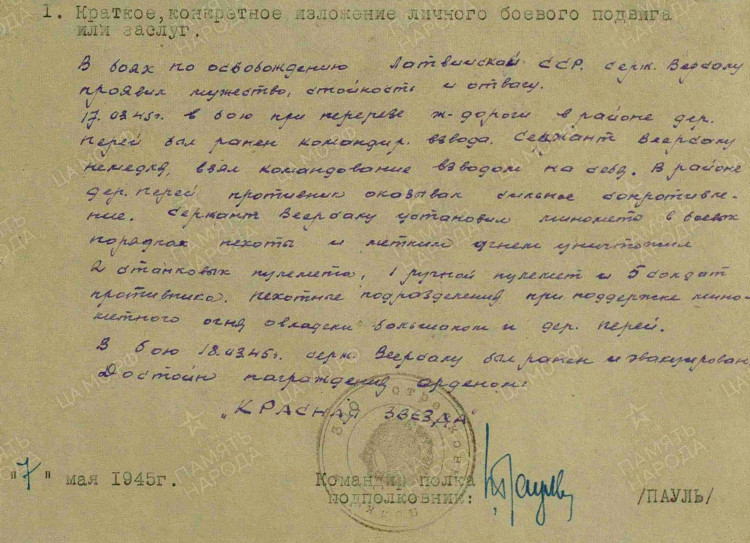 1. Краткое, конкретное изложение личного боевого подвига
или заслуг.
В боях по освобождению Латвийской ССР. серж. Веербалу
проявил мужество, стойкость и отвагу.
17.03.45г. в бою при перерезе ж-дороги в районе дер.
Перей был ранен командир взвода. Сержант Веербалу
немедля, взял командование взводом на себя. В районе
дер. Перей противник оказывал сильное сопротивле-
ние. Сержант Веербалу установил миномёты в боевых
порядках пехоты и метким огнем уничтожил
2 станковых пулемета, 1 ручной пулемет и 5 солдат
противника. Пехотные подразделения при поддержке мино-
метного огня овладели большаком и дер. Перей.
В бою 18.03.45г. серж Веербалу был ранен и эвакуирован
Достоин награждения орденом:
„КРАСНАЯ ЗВЕЗДА"
"7" мая 1945г.
Командир полка
подполковник:
/ПАУЛЬ/
ПАМЯТЬ НАРОДА
ЦА МО РФ